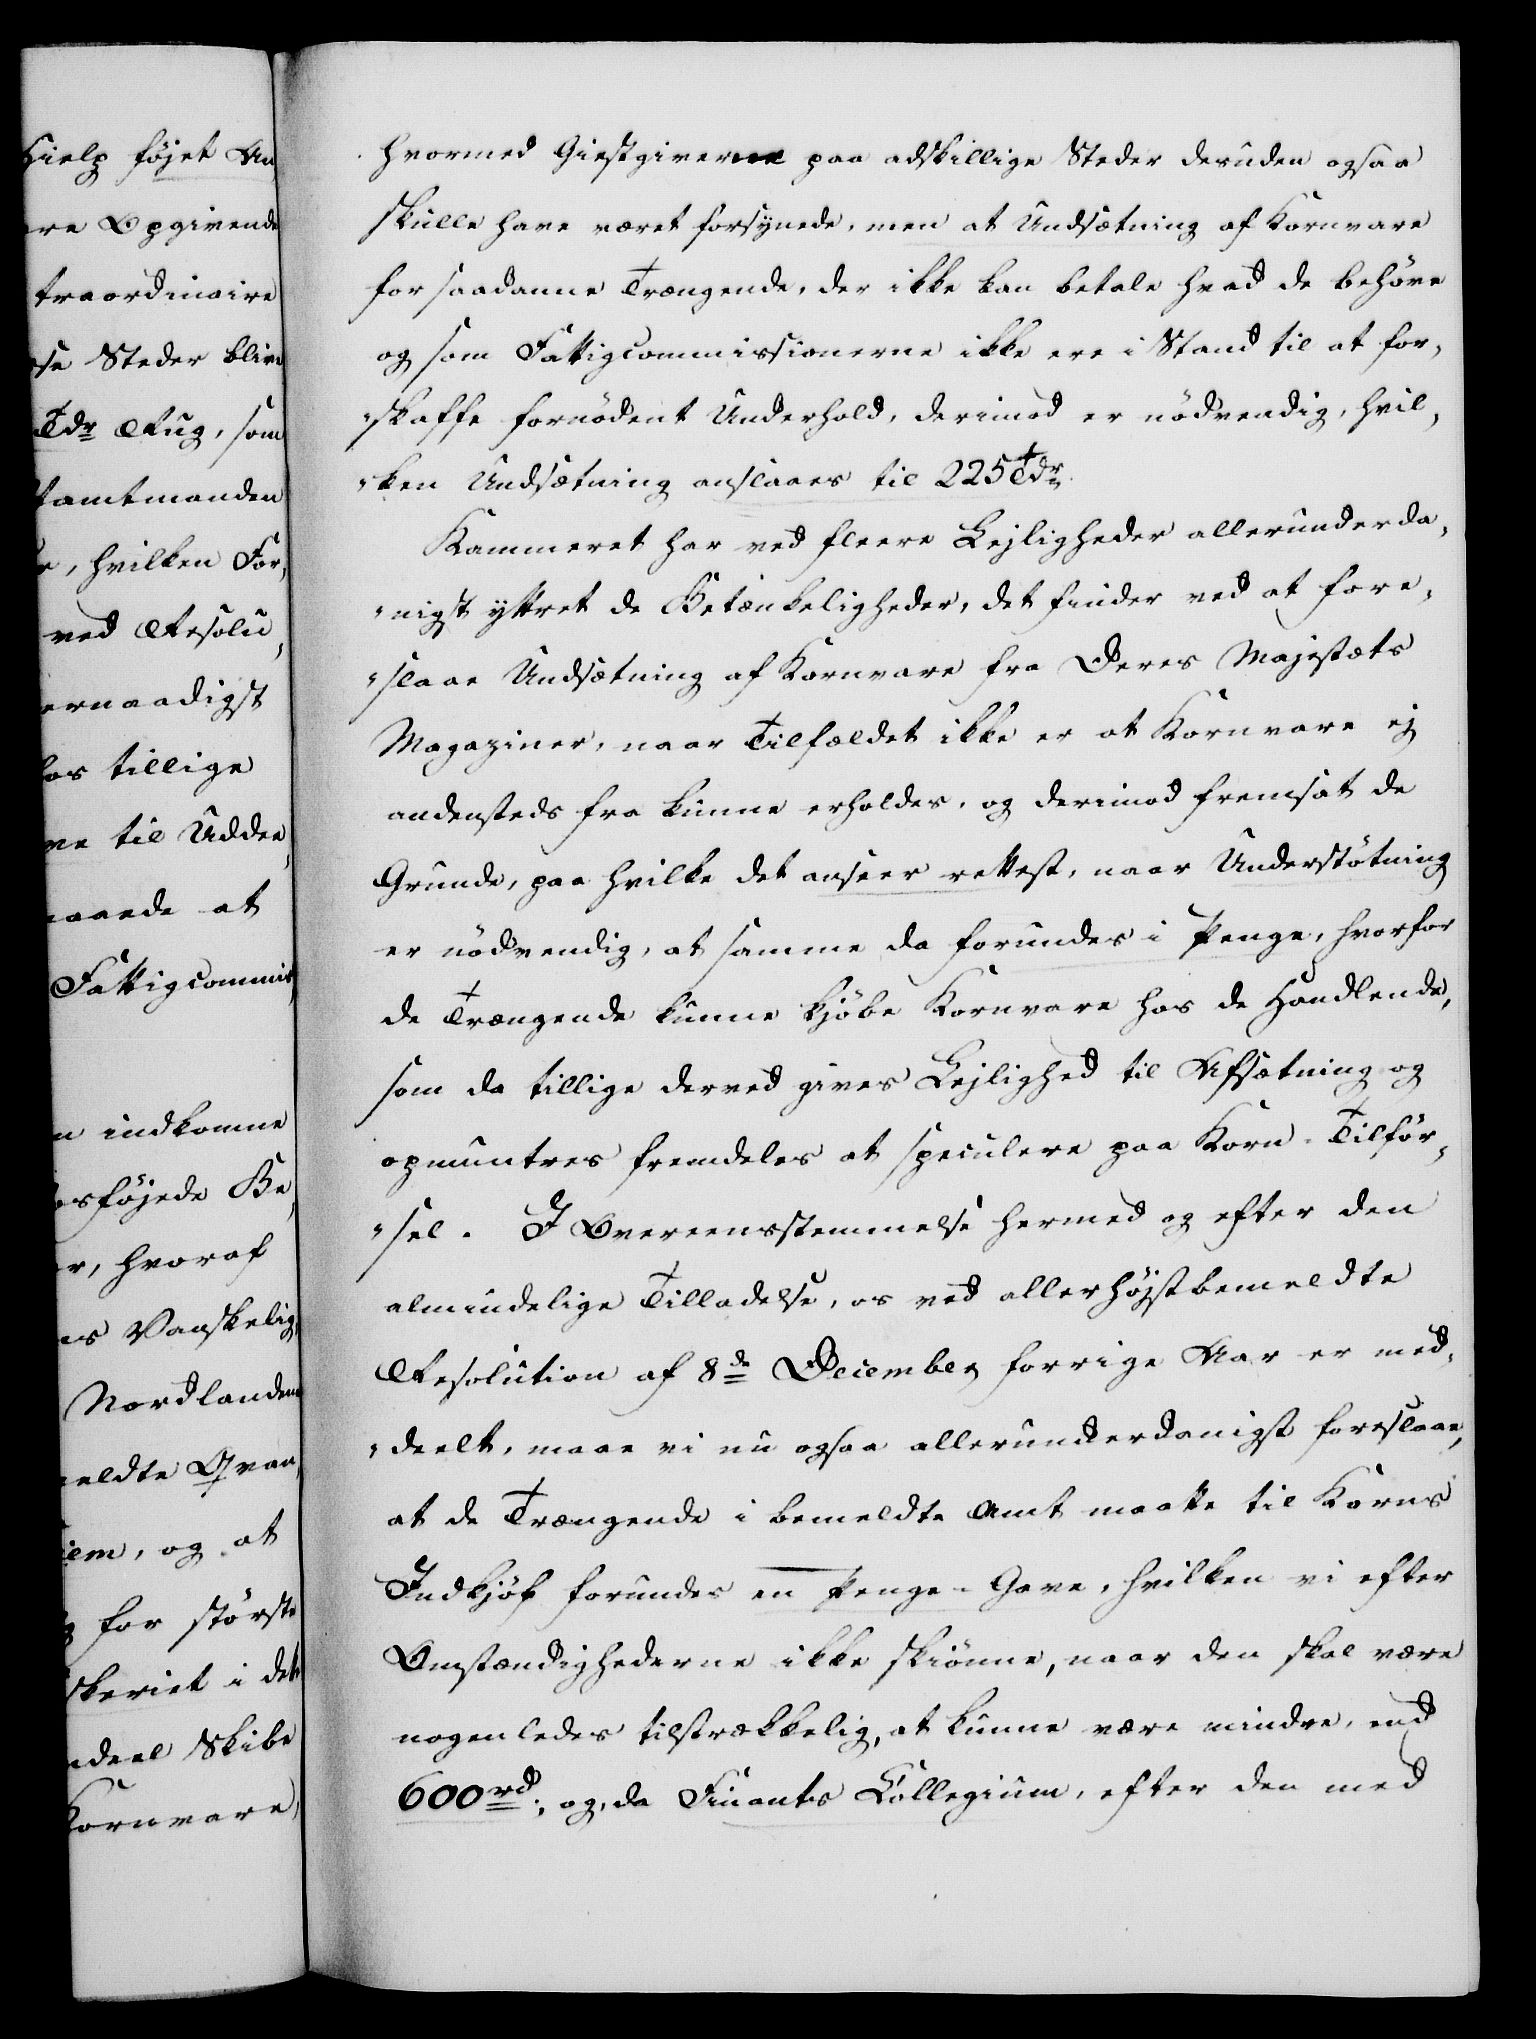 Hielp føjet An
re Opgivende
traordinaire
se Steder blive
Tdr Rug, som
tamtmanden
, hvilken For,
ved Resolu,
ernaadigst
os tillige
ve til Uddee,
maade at
Fattigcommis,
n indkomne
sføjede Be,
r, hvoraf
s Vanskelig,
Nordlandene
eldte Qvan,
iem, og at
for største
skeriet i det
ndeel Skibe
Kornvare,
hvormed Giestgiverne paa adskillige Steder desuden ogsaa
skulle have været forsynede, men at Undsætning af Kornvare
for saadanne Trængende, der ikke kan betale hvad de behöve
og som Fattigcommissionerne ikke ere i Stand til at for,
"skaffe fornödent Underhold, derimod er nödvendig, hvil,
"ken Undsætning anslaaes til 225 Tdr.
Kammeret har ved fleere Lejligheder allerunderda,
"nigst yttret de Betænkeligheder, det finder ved at fore,
"slaae Undsætning af Kornvare fra Deres Majestæts
Magaziner, naar Tilfældet ikke er at Kornvare ej
andensteds fra kunne erholdes, og derimod fremsat de
Grunde, paa hvilke det anseer rettest, naar Understötning
er nödvendig, at samme da forundes i Penge, hvorfor
de Trængende kunne kjöbe Kornvare hos de Handlende,
som da tillige derved gives Lejlighed til Afsætning og
opmuntres fremdeles at speculere paa Korn-Tilför,
"sel. I Overeensstemmelse hermed og efter den
almindelige Tilladelse, os ved allerhöjstbemeldte
Resolution af 8de December forrige Aar er med,
"deelt, maae vi nu ogsaa allerunderdanigst foreslaae,
at de Trængende i bemeldte Amt maatte til Korns
Indkjöb forundes en Penge-Gave, hvilken vi efter
Omstændighederne ikke skiönne, naar den skal være
nogenledes tilstrækkelig, at kunne være mindre, end
600 rd; og, da Finants Collegium, efter den med